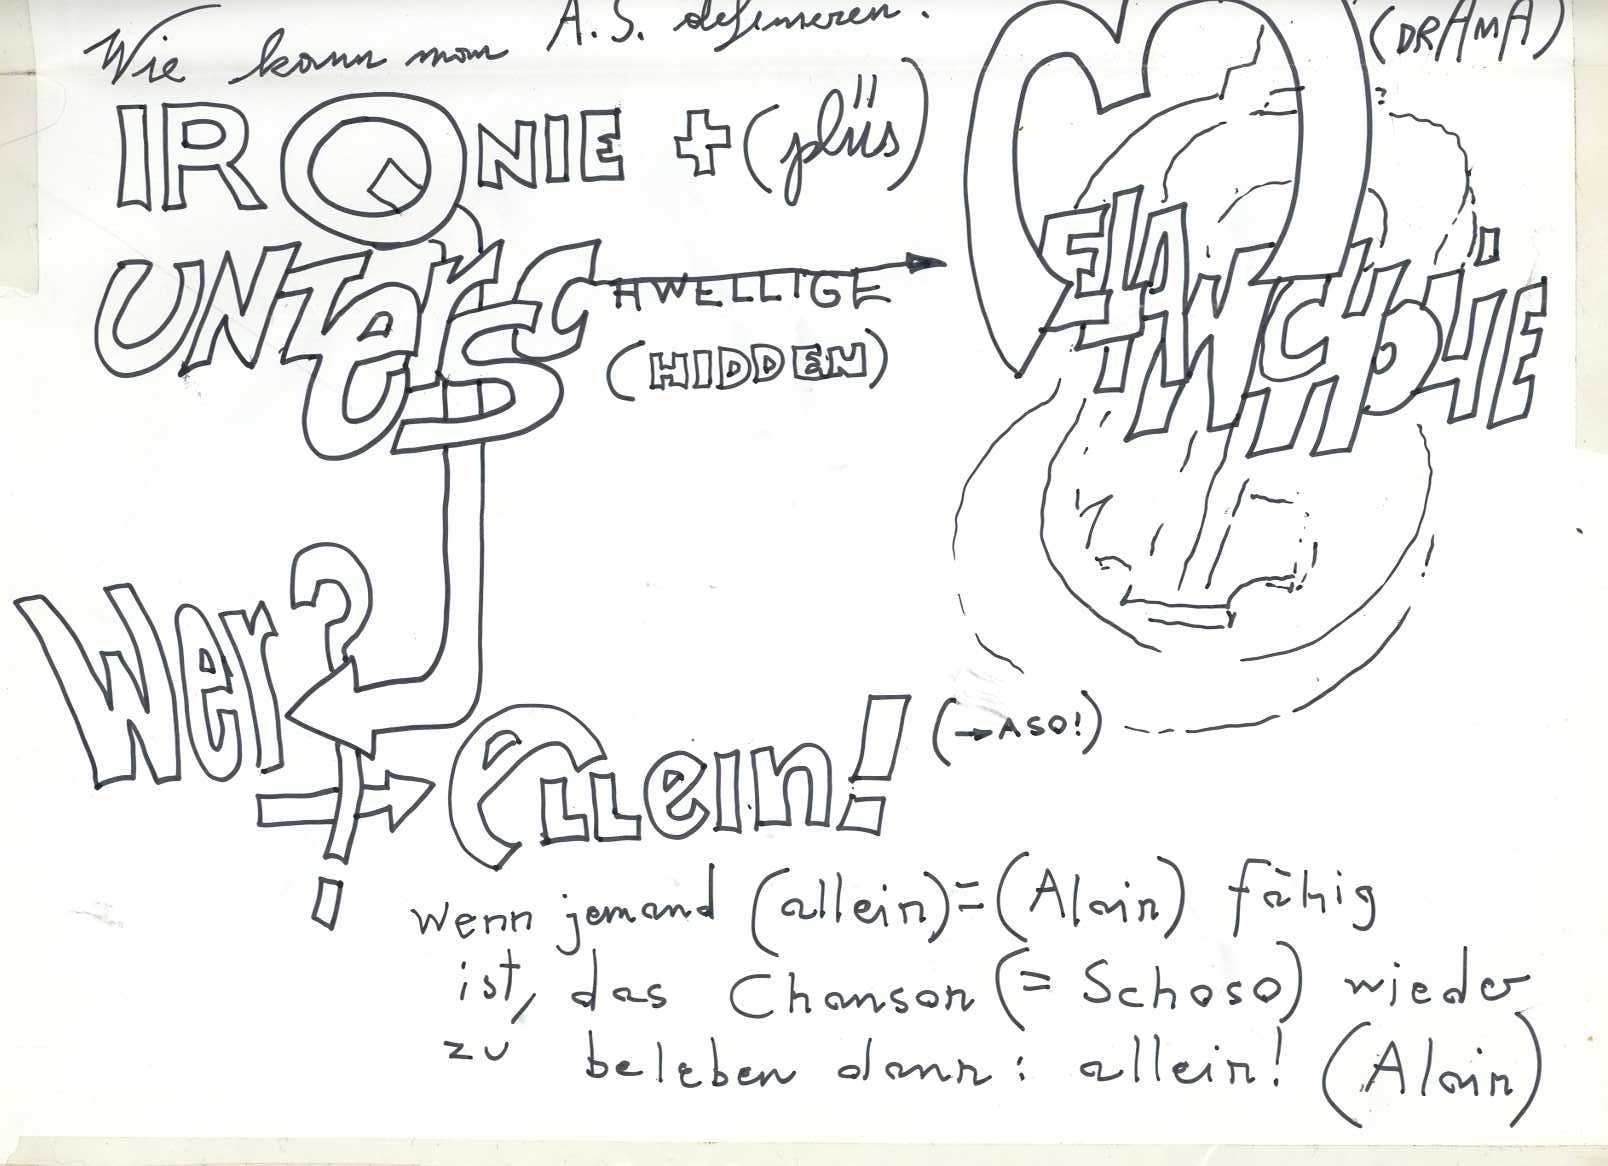 Wie kann man A.S. definieren.
(DRAMA)
IRONIE + (plüs)
UNTERSCHWELLIGE
(HIDDEN)
MELANCHOLIE
Wer?
Allein! (→ASO!)
wenn jemand (allein)=(Alain) fähig
ist, das Chanson (= Schoso) wieder
zu beleben dann: allein! (Alain)